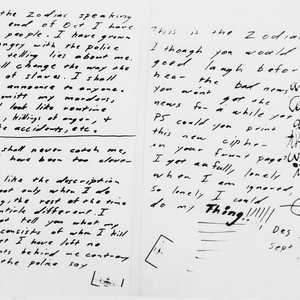 the Zodiac speaking
end of Oct I have
people. I have grown
angry with the police
telling lies about me.
ll change the way the
of slaves. I shall
announce to anyone.
mmitt my murders,
look like routine
, killings of anger, &
e accidents, etc.
shall never catch me,
have been too clever
like the description
out only when I do
, the rest of the time
entirle different. I
ot tell you what my
consists of when I kill
et I have left no
nts behind me contrary
the police say
This is the Zodiac
I though you would
good laugh before
hear the bad news
you won't get the
news for a while yet
PS could you print
this new cipher
in your frunt page?
I get aufully lonely
when I am ignored,
so lonely I could
do my Thing!!!!!!
Des
Sept